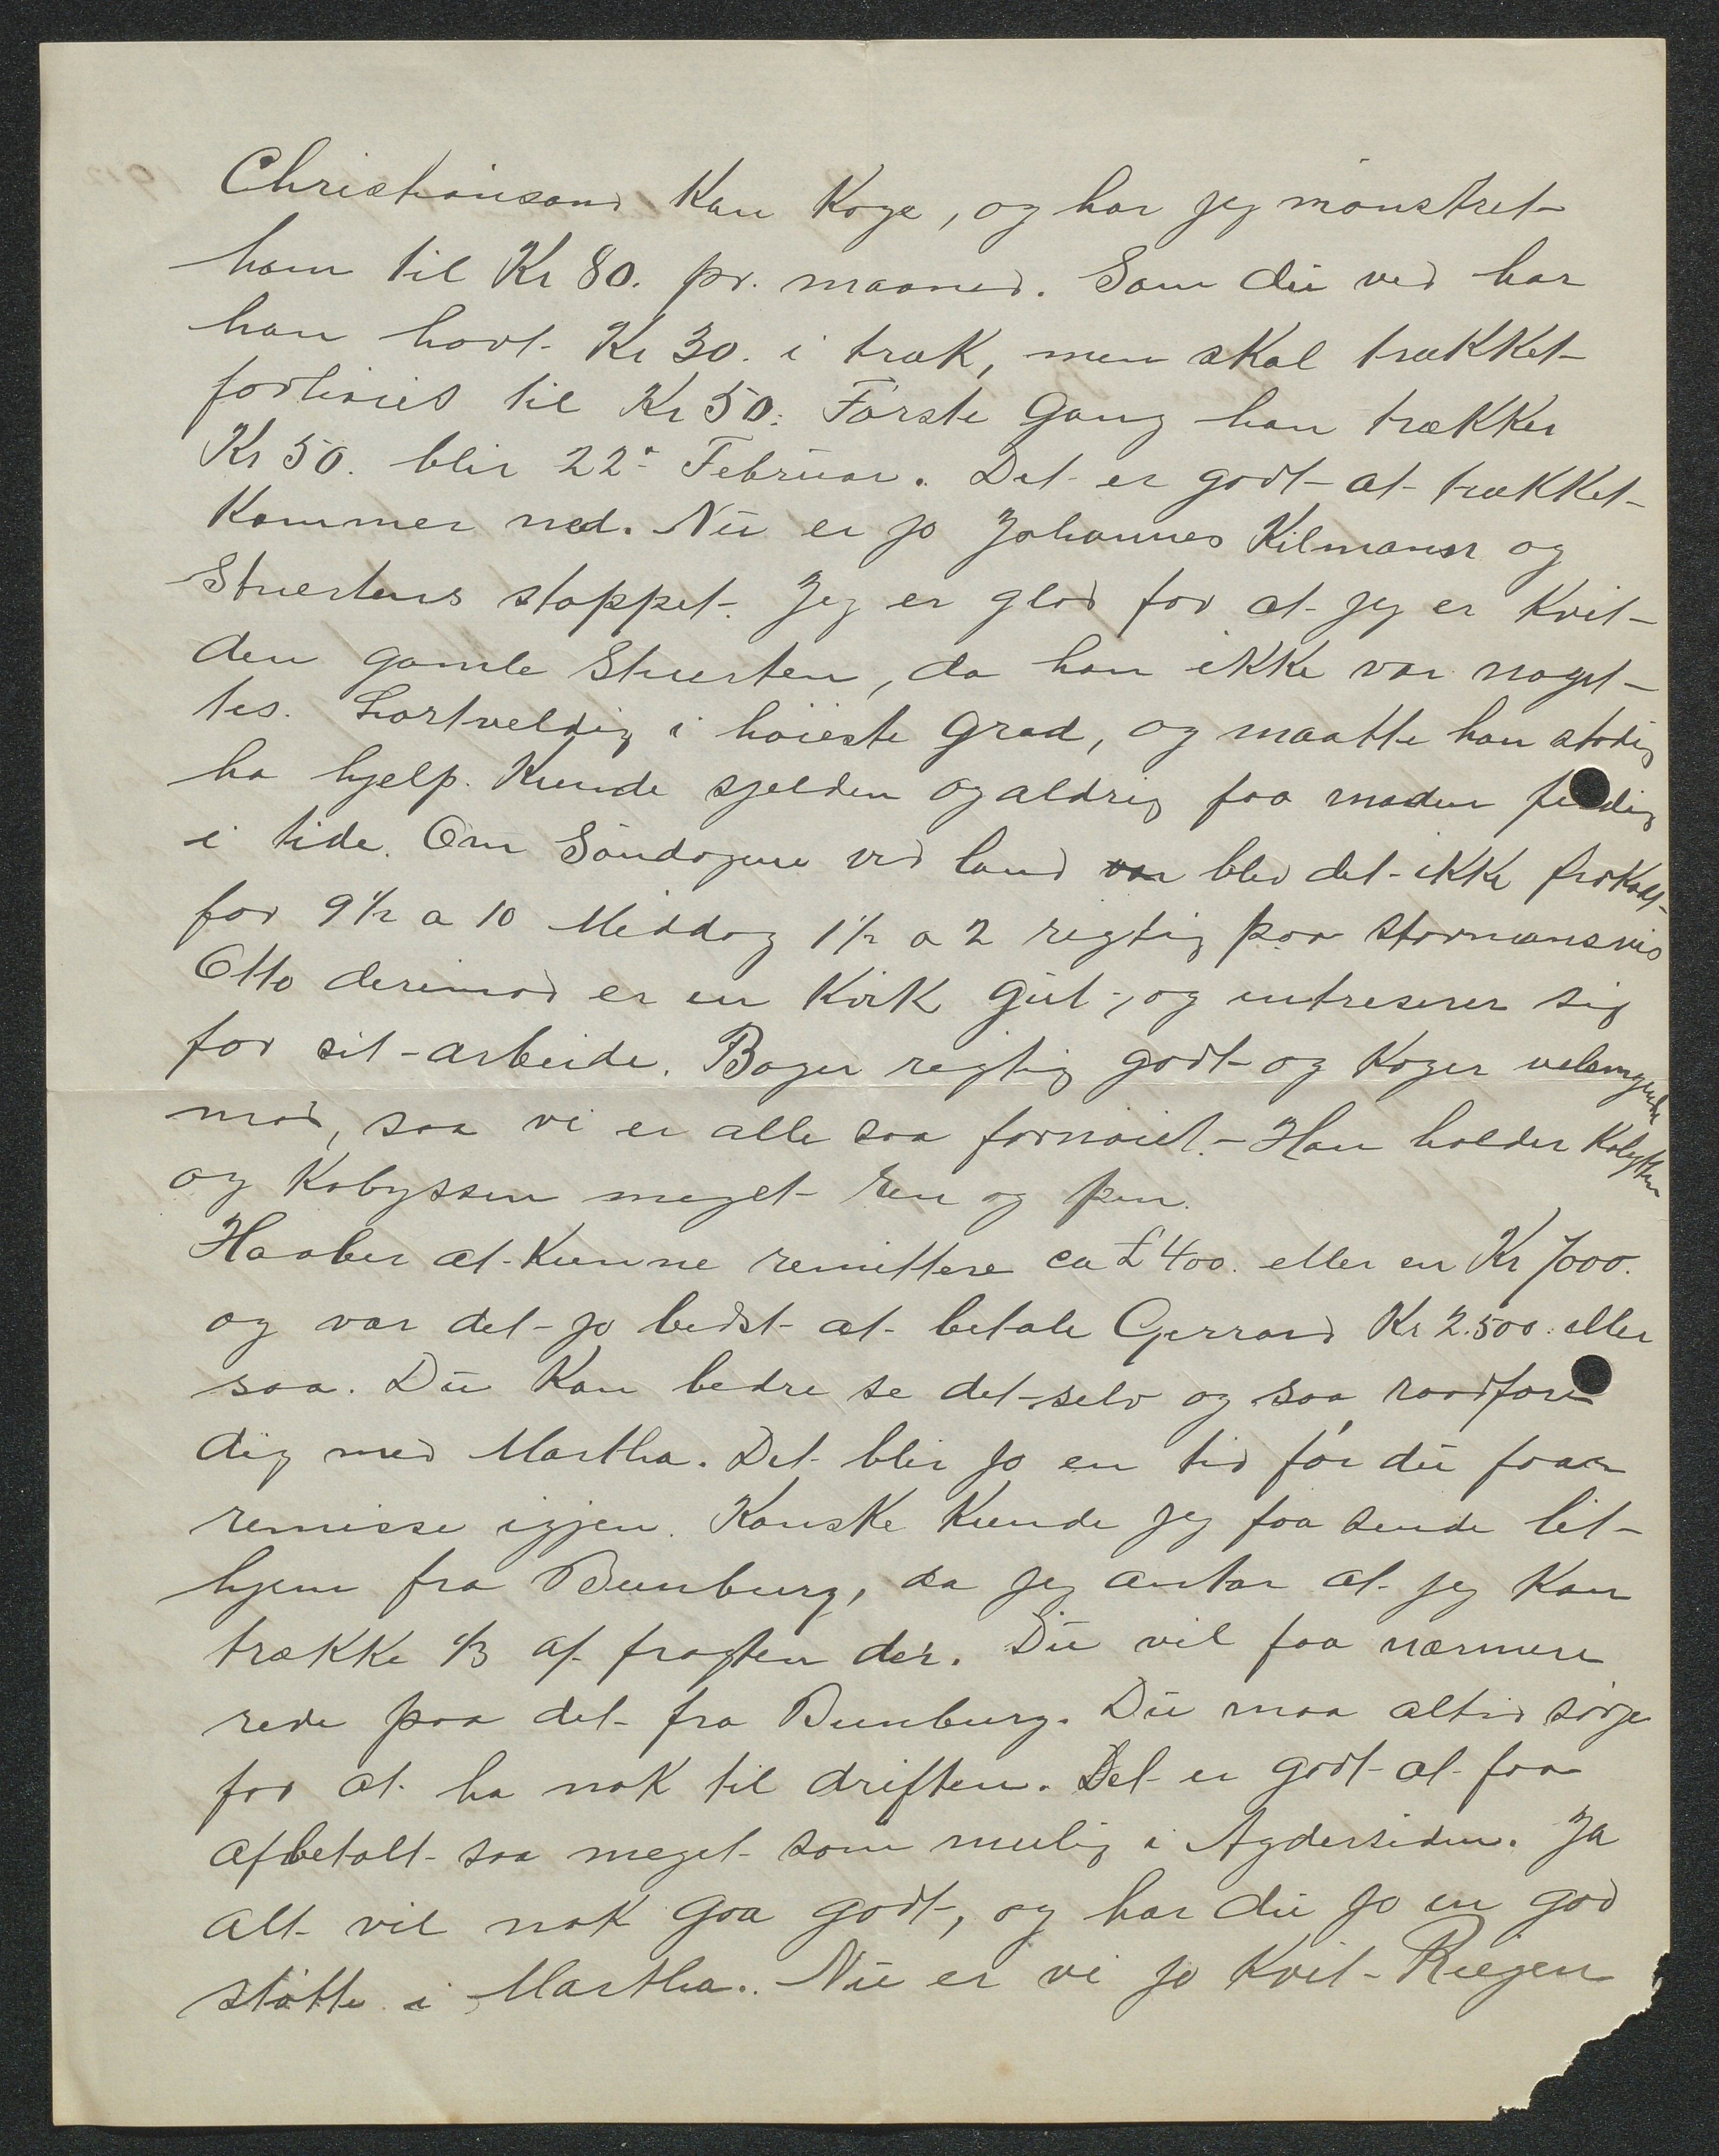 Christiansand kan koge, og har jeg mönstret
ham til Kr 80. pr. maaned. Som du ved har
han havt Kr 30. i træk, men skal trækket
forhöies til Kr 50. Første Gang han trækker
Kr 50. blir 22de Februar. Det er godt at trækket
kommer ned. Nu er jo Johannes Kilmann og
Stuertens stoppet. Jeg er glad for at jeg er kvit
den gamle Stuerten, da han ikke var noget
tes. Lortveldig i høieste Grad, og maatte han stadig
ha hjelp. Kunde sjelden og aldrig faa maden ferdig
i tide. Om Søndagene ved land blev det ikke frokost
for 9½ a 10 Middag 1½ a 2 rigtig paa stormansvis
Otto derimod er en kvik gut, og intreserer sig
for sit arbeide. Bager regtig godt og koger velsmagende
mad, saa vi er alle saa fornøiet. Han holder Kahytten
og Kabyssen meget ren og pen.
Haaber at kunne remittere ca £400. eller en Kr 7000.
og var det jo bedst at betale Gerrard Kr 2.500. eller
saa. Du kan bedre se det selv og saa raadføre
dig med Martha. Det blir jo en tid før du faar
remisse igjen. Kanske kunde jeg faa sende lit
hjem fra Bunburg, da jeg antar at jeg kan
trække 1/3 af fragten der. Du vil faa nærmere
rede paa det fra Bunburg. Du maa altid sørge
for at ha nok til driften. Det er godt at faa
afbetalt saa meget som mulig i Agdersiden. Ja
alt vil nok gaa godt, og har du jo en god
støtte i Martha. Nu er vi jo kvit Riegen